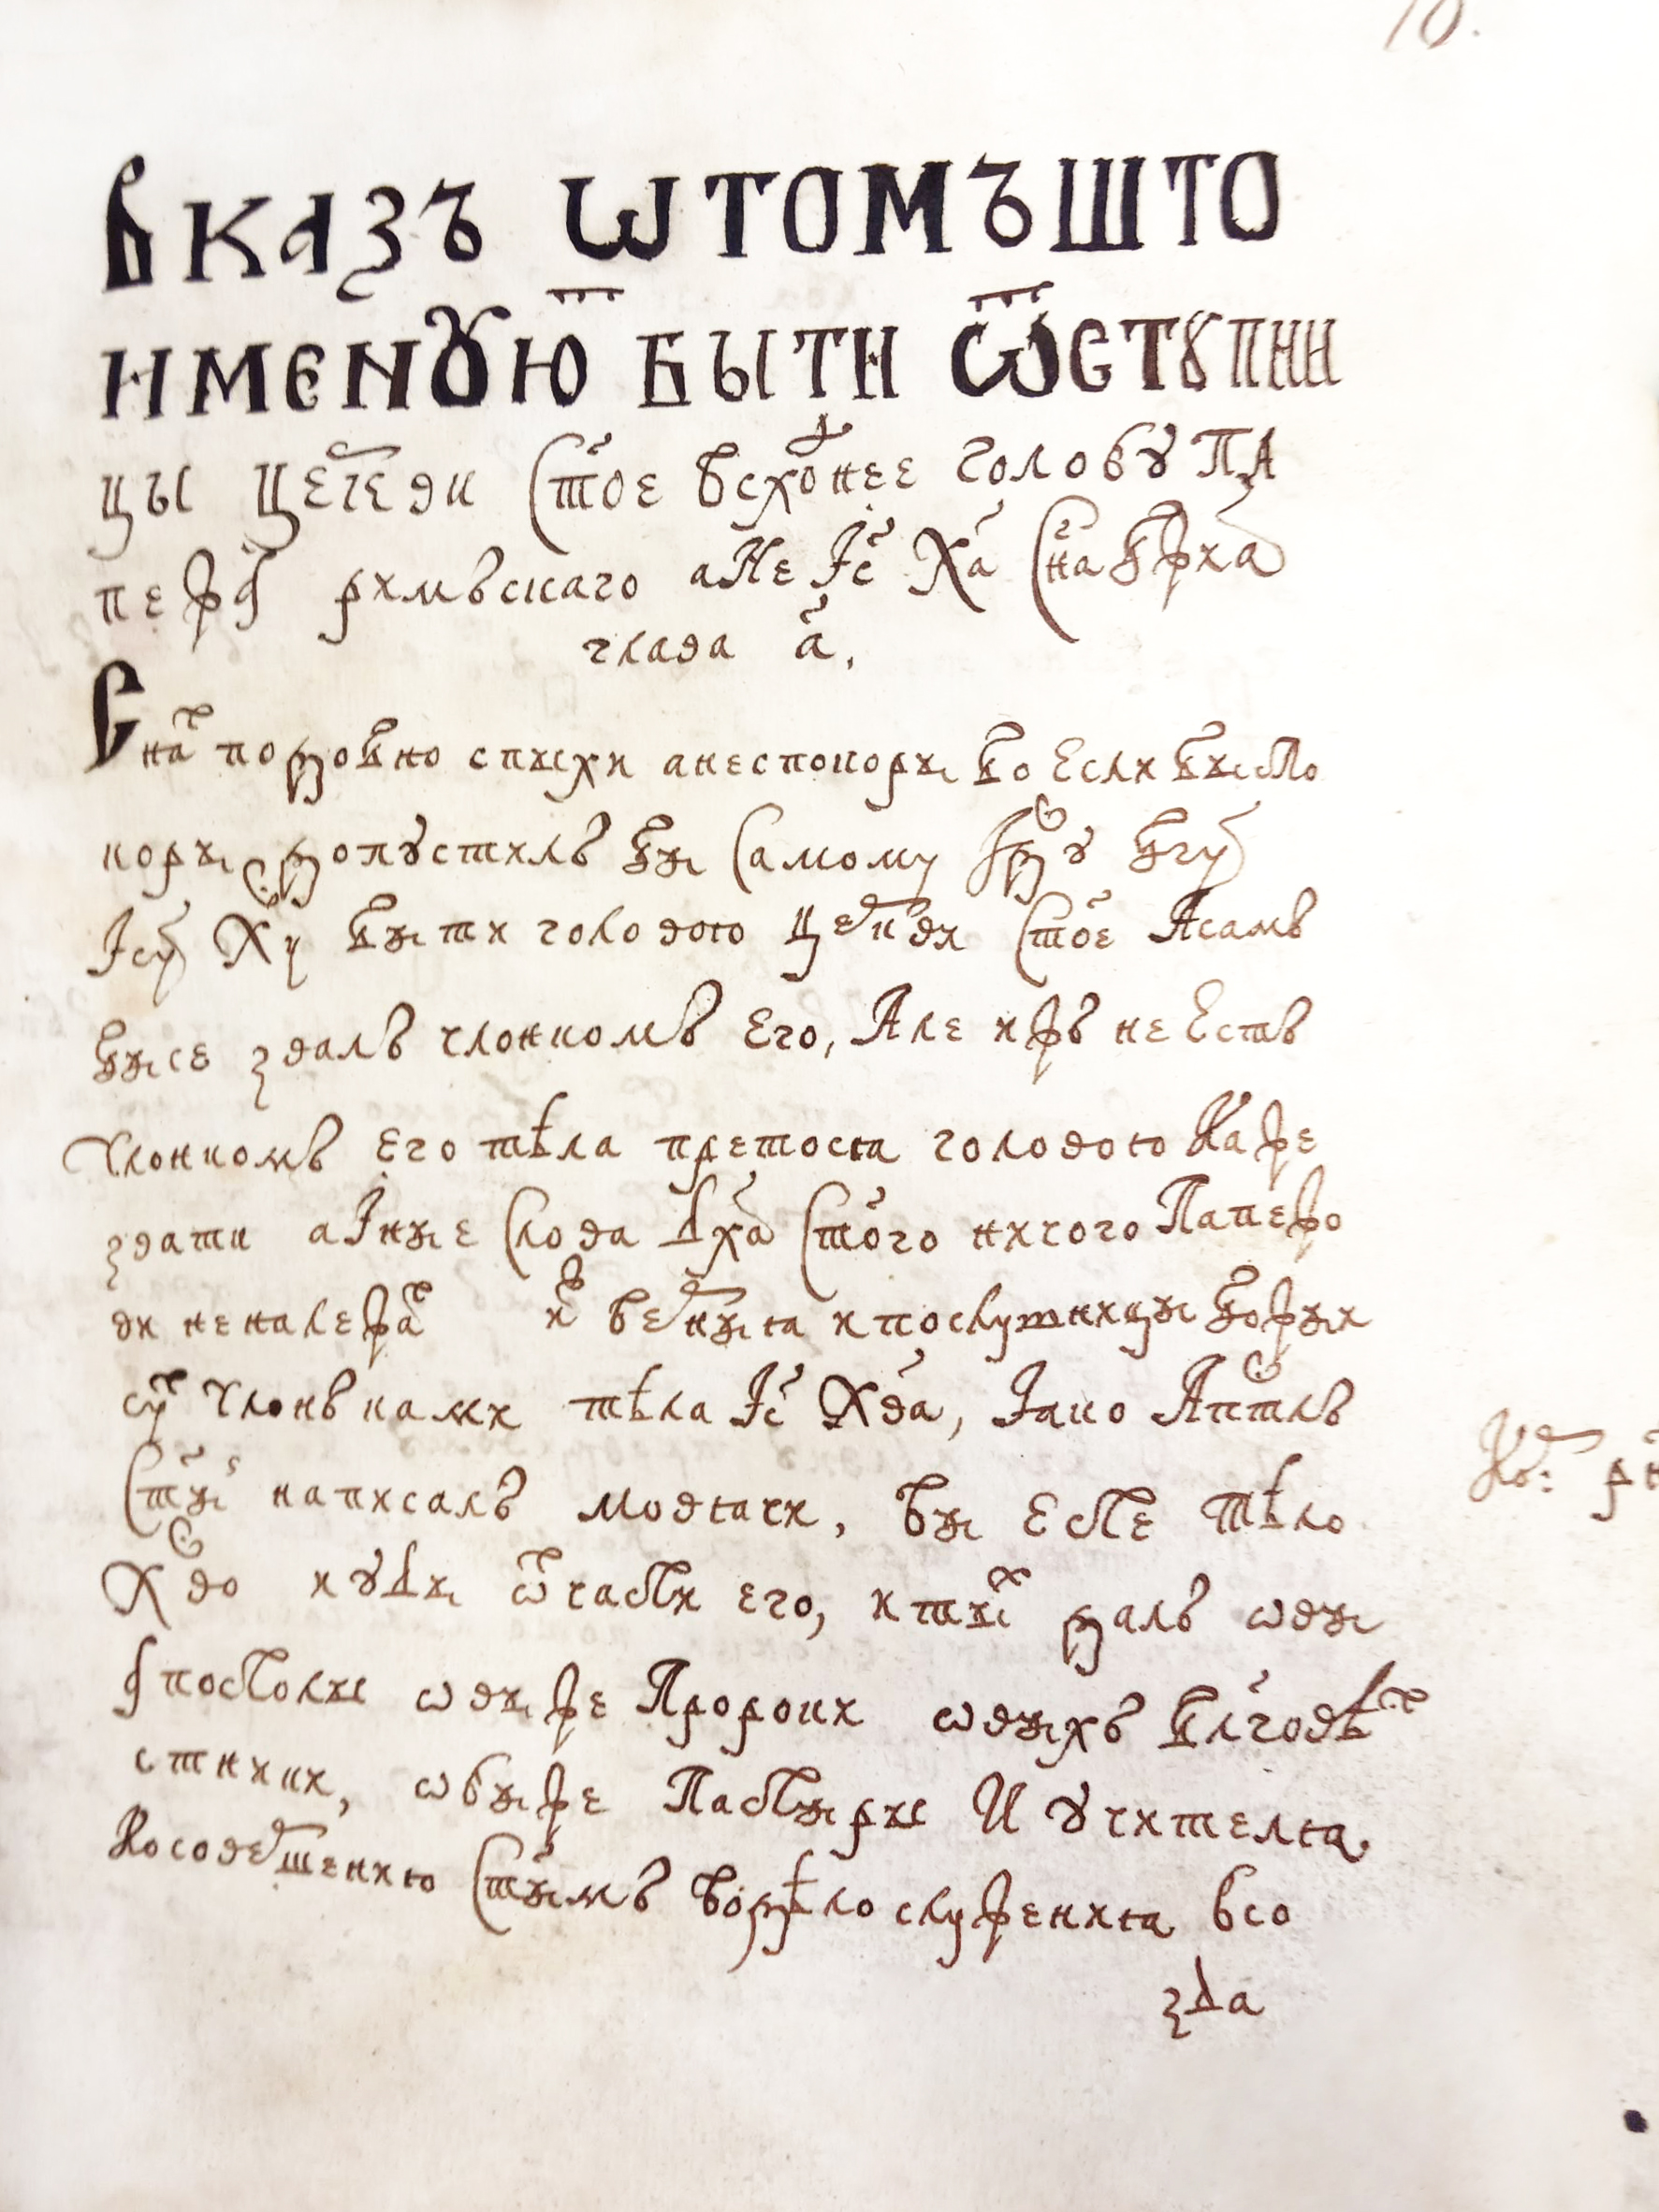 10.
ВКАЗЪ ѠТОМЪШТО
ИМЕНꙊЮ БЫТИ ѾСТꙊПНИ
цы Це҃ркви Ст҃ое Всхо́днее голово́ꙋ ПА
пежа римъскаго а Не Іс҃ Ха҃ Сн҃а Бжиа
глава а҃.
спихи а неспокоры бо Если бысмо
коры допꙋстилъ бы Самому Гдⷭ҇ꙋ Бг҃у
Ісу҃ Хꙋ Быти головою Церкви Ст҃ое А самъ
бысе здалъ члонкомъ Его, Але ижъ не Естъ
Члонкомъ Его тѣла претосѧ головою Каже
звати а Иные Слова Дх҃а Ст҃ого ничого Папежо
ви неналежат и҆ верныѧ и послушницы божыи
сут Члонъками тѣла Іс҃ Хв҃а, Іако Апⷭ҇толъ
Ст҃ый написалъ мовѧчи, Вы Есте Тѣло
Хⷭ҇во и ꙋды ѿчасти его, и тых далъ ѡвы
апостолы ѡвы же Пророки ѡвыхъ Блг҃овѣ
стники, ѡвы же Пастыры И ꙋчителѧ
Ко совершению Ст҃ымъ Во дѣло служениѧ всо
зда